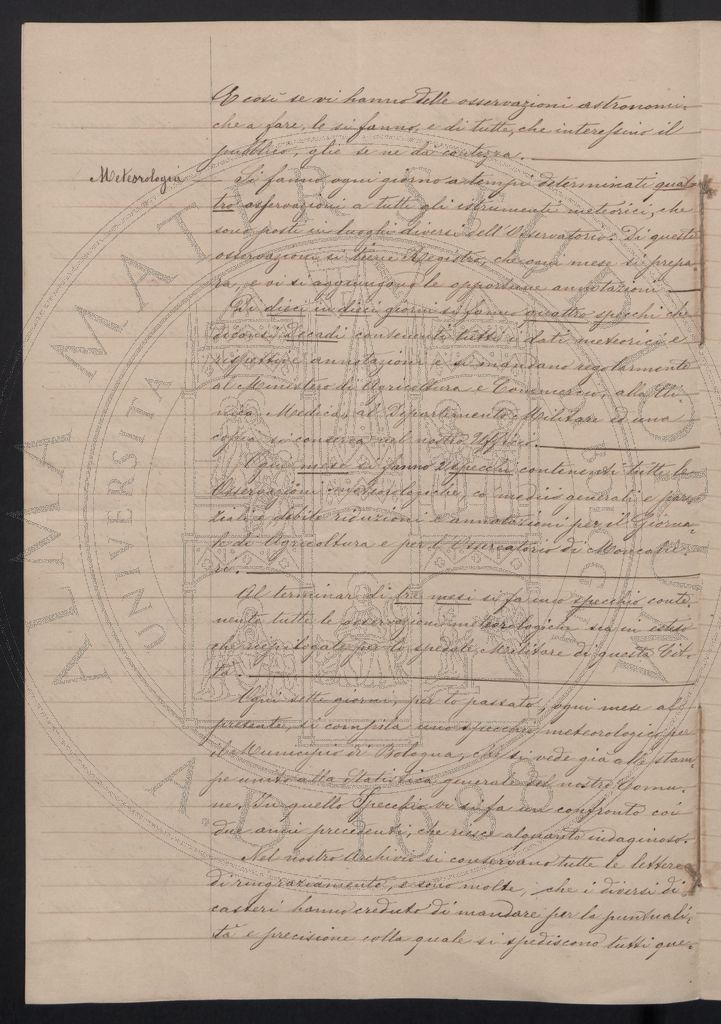 E così se vi hanno delle osservazioni astronomi-
che a fare, le si fanno, e di tutte, che interessino il
pubblico, glie se ne dà contezza.
Meteorologia
Si fanno, ogni giorno a tempi determinati quat-
tro osservazioni a tutti gli istrumenti meteorici, che
sono posti in luoghi diversi dell'Osservatorio. Di queste
osservazioni si tiene Registro, che ogni mese si prepa
ra, e vi si aggiungono le opportune annotazioni
Di dieci in dieci giorni si fanno quattro specchi che
diconsi Decadi contenenti tutti i dati meteorici e
rispettive annotazioni e si mandano regolarmente
al Ministero di Agricoltura e Commercio, alla Cli-
nica Medica, al Dipartimento Militare ed una
copia si conserva nel nostro Ufficio.
Ogni mese si fanno 2 specchi contenenti tutte le
Osservazioni meteorologiche, co' medii generali e par-
ziali e debite riduzioni e annotazioni per il Giorna-
le di Agricoltura e per l'Osservatorio di Moncalie-
ri.
Al terminar di tre mesi si fa uno specchio conte-
nente tutte le osservazioni meteorologiche sia in estese
che riepilogate per lo spedale Militare di questa Cit-
tà.
Ogni sette giorni, per lo passato, ogni mese al
presente, si compila uno specchio meteorologico per
il Municipio di Bologna, che si vede già alle stam-
pe unito alla Statistica generale del nostro Comu-
ne. In quello Specchio vi si fa un confronto coi
due anni precedenti, che riesce alquanto indaginoso.
Nel nostro Archivio si conservano tutte le lettere
di ringraziamento, e sono molte, che i diversi di-
casteri hanno creduto di mandare per la puntuali-
tà e precisione colla quale si spediscono tutti que-
ALMA MATER STUDIORUM
UNIVERSITA
BOLOGNA
A.D. 1088